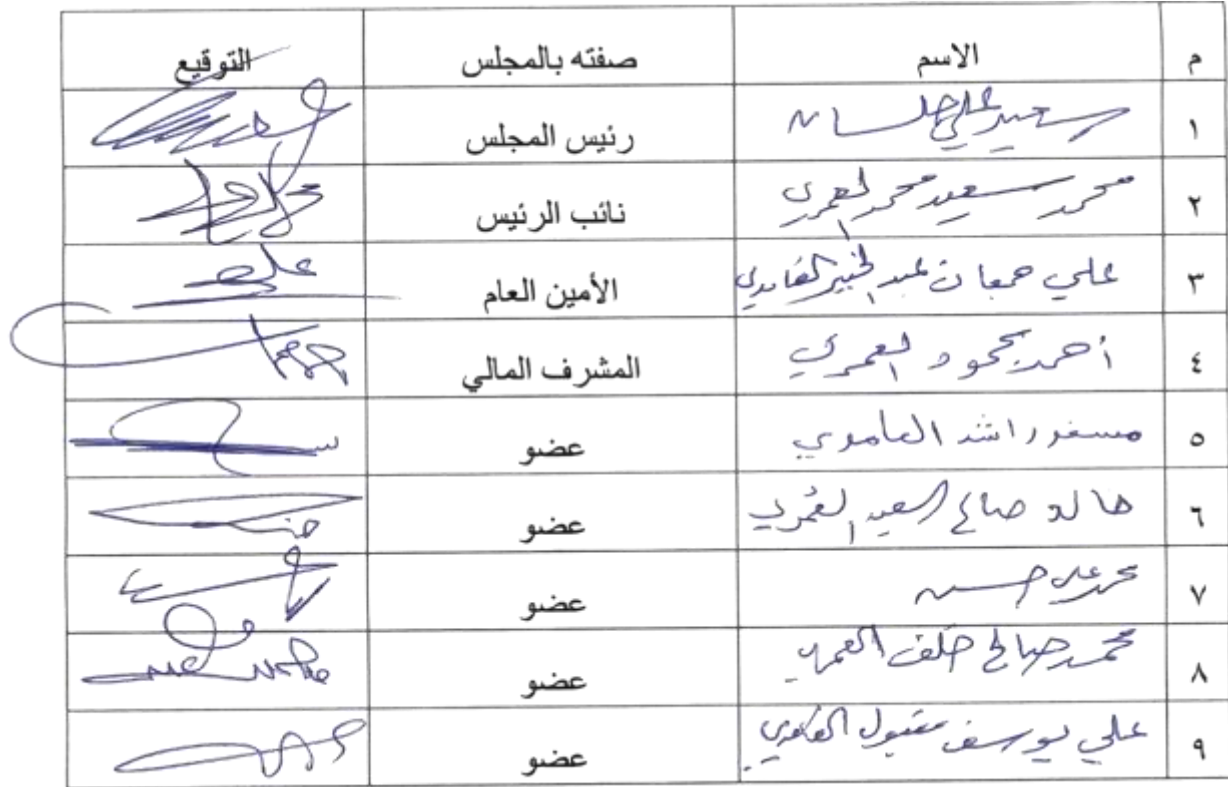 م الاسم صفته بالمجلس التوقيع
١ سعيد علي رئيس المجلس
٢ محمد سعيد محمد العمري نائب الرئيس
٣ علي جمعان عبد الخبير الغامدي الأمين العام
٤ أحمد محمود العمري المشرف المالي
٥ مسفر راشد العامودي عضو
٦ خالد صالح السعيد العمري عضو
٧ محمد علي حسين عضو
٨ محمد صالح خلف العمري عضو
٩ علي يوسف مقبول الغامدي عضو